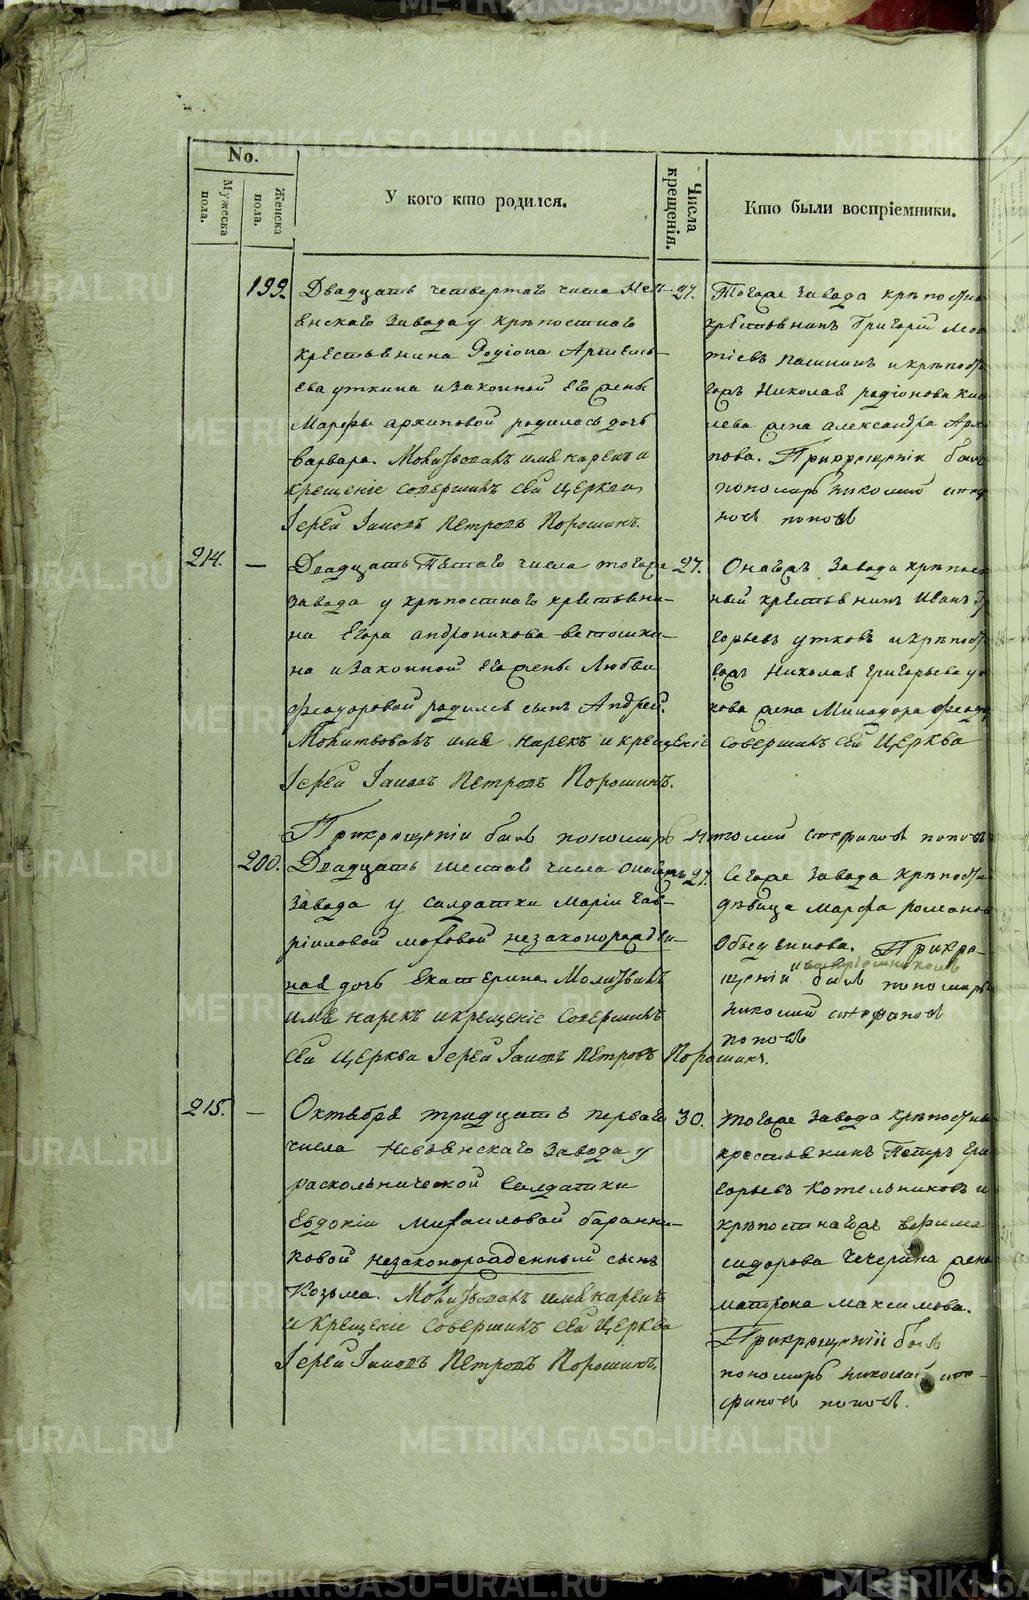 No.
Мужеска пола.
Женска пола.
У кого кто родился.
Числа крещенія.
Кто были воспріемники.
199.
Двадцать четвертаго числа Невь-
янскаго завода у крѣпостнаго
крестьянина Родіона
ева уткина и законной его жены
Марфы архиповой родилась дочь
Варвара. Молитвовалъ имя нарекъ и
крещеніе совершилъ сей церкви
Іерей Іаковъ Петровъ Порошинъ.
27.
Тогоже завода крѣпостно
крестьянинъ Григорій
тіевъ и крѣпост
гожъ Николая родіонова
лева жена александра Арх
пова. При крещеніи былъ
пономарь николай сте
новъ поповъ
214. —
Двадцать Пятаго числа тогоже
завода у крѣпостнаго крестьяни-
на Егора андроникова ветошки-
на и законной его жены Любви
феодоровой родился сынъ Андрей.
Молитвовалъ имя нарекъ и крещеніе совершилъ сей Церкви
Іерей Іаковъ Петровъ Порошинъ.
При крещеніи былъ пономарь николай стефановъ поповъ
27.
Онагожъ завода крѣпост
ный крестьянинъ Иванъ Г
горьевъ утковъ и крѣпост
гожъ Николая григорьева у
кова жена Минадора феод
200.
Двадцать шестаго числа онагожъ
завода у салдатки Маріи гав-
ріиловой моховой незаконорожден-
ная дочь екатерина. Молитв.
имя нарекъ и крещеніе совершилъ
сей церкви Іерей Іаковъ Петровъ Порошинъ.
27.
Сегоже завода крѣпостн
дѣвица Марфа романов
Обыденнова. При кре-
и воспріемникомъ
щеніи былъ пономарь
николай стефановъ
поповъ
215. —
Октября тридцать перваго
числа Невьянскаго завода у
раскольнической салдатки
Евдокіи михаиловой баранни-
ковой незаконорожденный сынъ
Козьма. Молитвовалъ имя нарекъ
и крещеніе совершилъ сей церкви
Іерей Іаковъ Петровъ Порошинъ.
30.
тогоже завода крѣпостны
крестьянинъ Петръ гри
горьевъ котельниковъ и
крѣпостнагожъ ефима
сидорова чечерина жена
матрона максимова.
При крещеніи былъ
пономарь николай сте-
фановъ поповъ.
METRIKI.GASO-URAL.RU